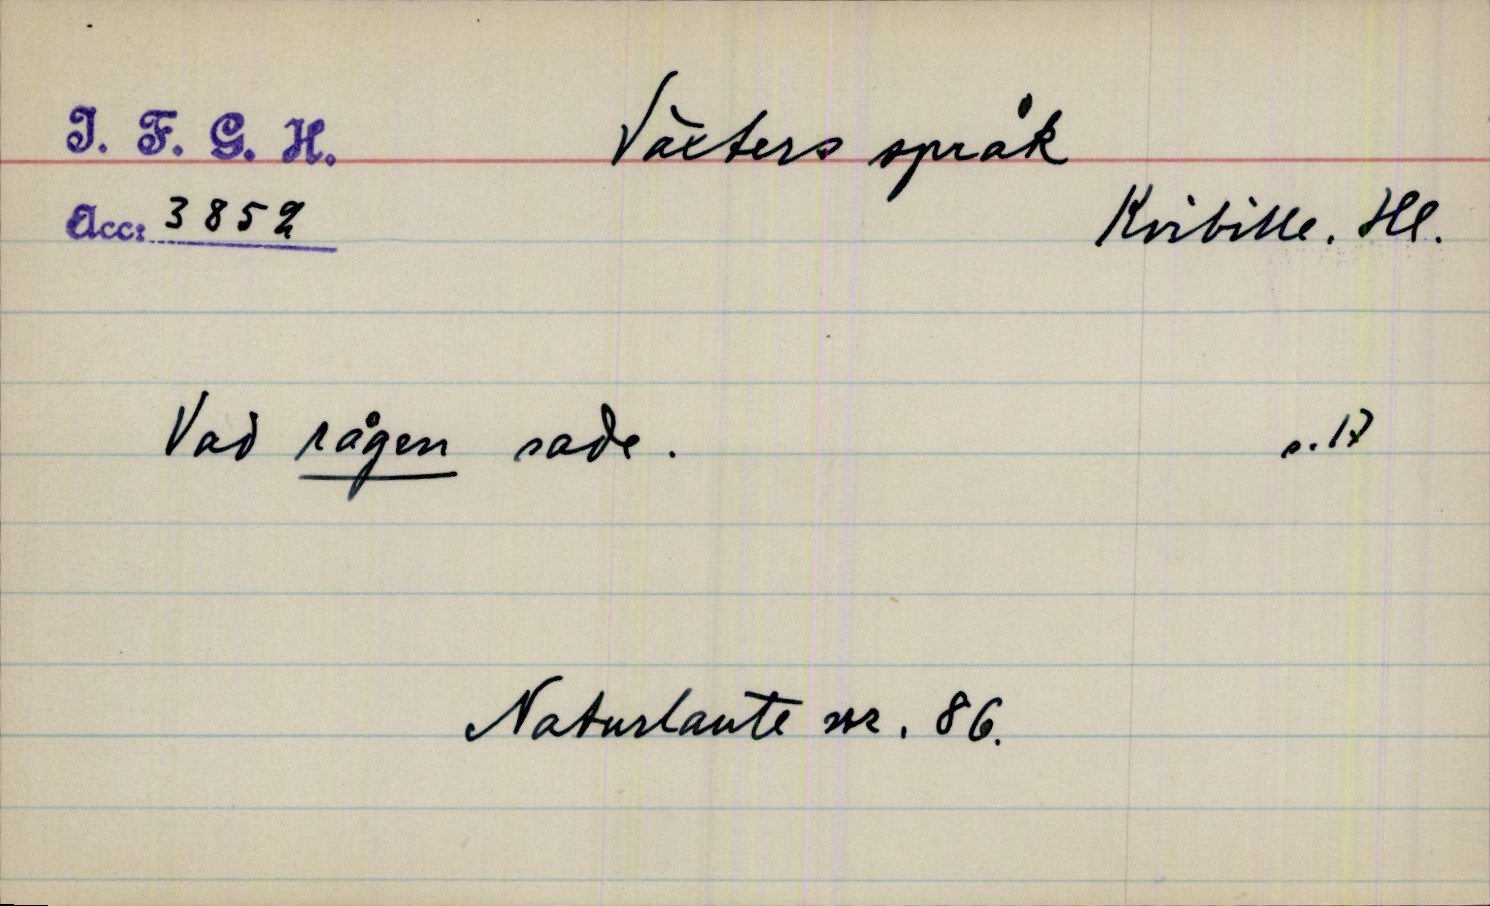 I. F. G. H. Växters språk
Acc: 3852 Kvibille. Hl.
Vad rågen sade. s. 17
Naturlaute nr. 86.